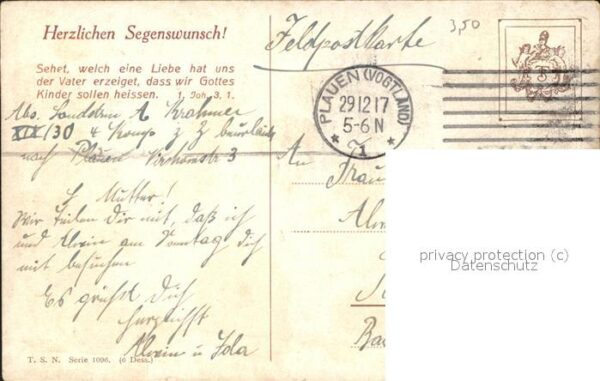 Herzlichen Segenswunsch!
Sehet, welch eine Liebe hat uns
der Vater erzeiget, dass wir Gottes
Kinder sollen heissen. 1. Joh. 3, 1.
Feldpostkarte
3,50
PLAUEN (VOGTLAND)
29 12 17
5-6 N
* 1 *
Abs. Landstm A Krahmer
XIX/30 4 Komp z Z beurlaubt
nach Plauen 3
An
Frau
L Mutter!
Wir teilen Dir mit, daß ich
und Alwin am Sonntag Dich
mit besuchen
Es grüßt Dich
herzlichst
Alwin u Ida
privacy protection (c)
Datenschutz
T. S. N. Serie 1096. (6 Dess.)